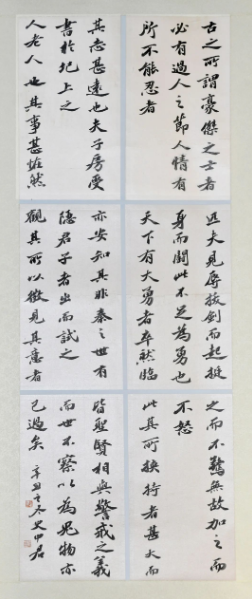 古之所謂豪傑之士者
必有過人之節人情有
所不能忍者
匹夫見辱拔劍而起挺
身而鬪此不足為勇也
天下有大勇者卒然臨
之而不驚無故加之而
不怒
此其所挾持者甚大而
其志甚遠也夫子房受
書於圯上之
人老人也其事甚怪然
亦安知其非秦之世有
隱君子者出而試之
觀其所以微見其意者
皆聖賢相與警戒之義
而世不察以為鬼物亦
已過矣 辛丑之冬史中君